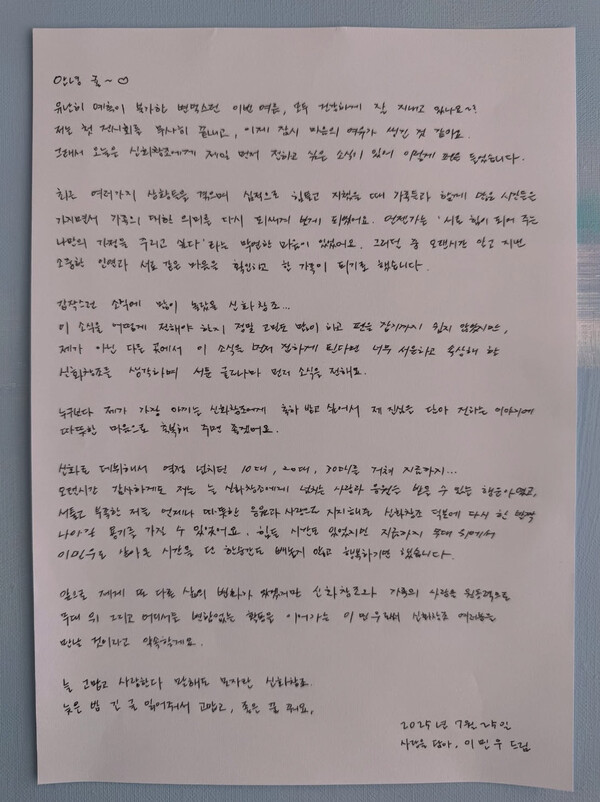 안녕 귤~♡
유난히 예측이 불가한 변덕스런 이번 여름, 모두 건강하게 잘 지내고 있나요~?
저는 첫 전시회를 무사히 끝내고, 이제 잠시 마음의 여유가 생긴 것 같아요.
그래서 오늘은 신화창조에게 제일 먼저 전하고 싶은 소식이 있어 이렇게 펜을 들었습니다.
최근 여러가지 상황들을 겪으며 심적으로 힘들고 지쳤을 때 가족들과 함께 많은 시간들을
가지면서 가족의 대한 의미를 다시 되새겨 보게 되었어요. 언젠가는 '서로 힘이 되어 주는
나만의 가정을 꾸리고 싶다'라는 막연한 마음이 있었어요. 그러던 중 오랜시간 알고 지낸
소중한 인연과 서로 같은 마음을 확인하고 한 가족이 되기로 했습니다.
갑작스런 소식에 많이 놀랐을 신화창조...
이 소식을 어떻게 전해야 하지 정말 고민도 많이 하고 펜을 잡기까지 쉽지 않았지만,
제가 아닌 다른 곳에서 이 소식을 먼저 접하게 된다면 너무 서운하고 속상해 할
신화창조를 생각하며 서툰 글로나마 먼저 소식을 전해요.
누구보다 제가 가장 아끼는 신화창조에게 축하 받고 싶어서 제 진심을 담아 전하는 이야기에
따뜻한 마음으로 축복해 주면 좋겠어요.
신화로 데뷔해서 열정 넘치던 10대, 20대, 30대를 거쳐 지금까지...
오랜시간 감사하게도 저는 늘 신화창조에게 넘치는 사랑과 응원을 받을 수 있는 행운아였고,
서툴고 부족한 저를 언제나 따뜻한 응원과 사랑으로 지지해준 신화창조 덕분에 다시 한 발짝
나아갈 용기를 가질 수 있었어요. 힘든 시간도 있었지만 지금까지 무대 위에서
이민우로 살아온 시간을 단 한순간도 빼놓지 않고 행복하기만 했습니다.
앞으로 제게 또 다른 삶의 변화가 있겠지만 신화창조와 가족의 사랑을 원동력으로
무대 위 그리고 어디서든 변함없는 활동을 이어가는 이민우로 신화창조 여러분을
만날 것이라고 약속할게요.
늘 고맙고 사랑한다 말해도 모자란 신화창조.
늦은 밤 긴 글 읽어줘서 고맙고, 좋은 꿈 꿔요.
2025년 7월 25일
사랑을 담아, 이민우 드림